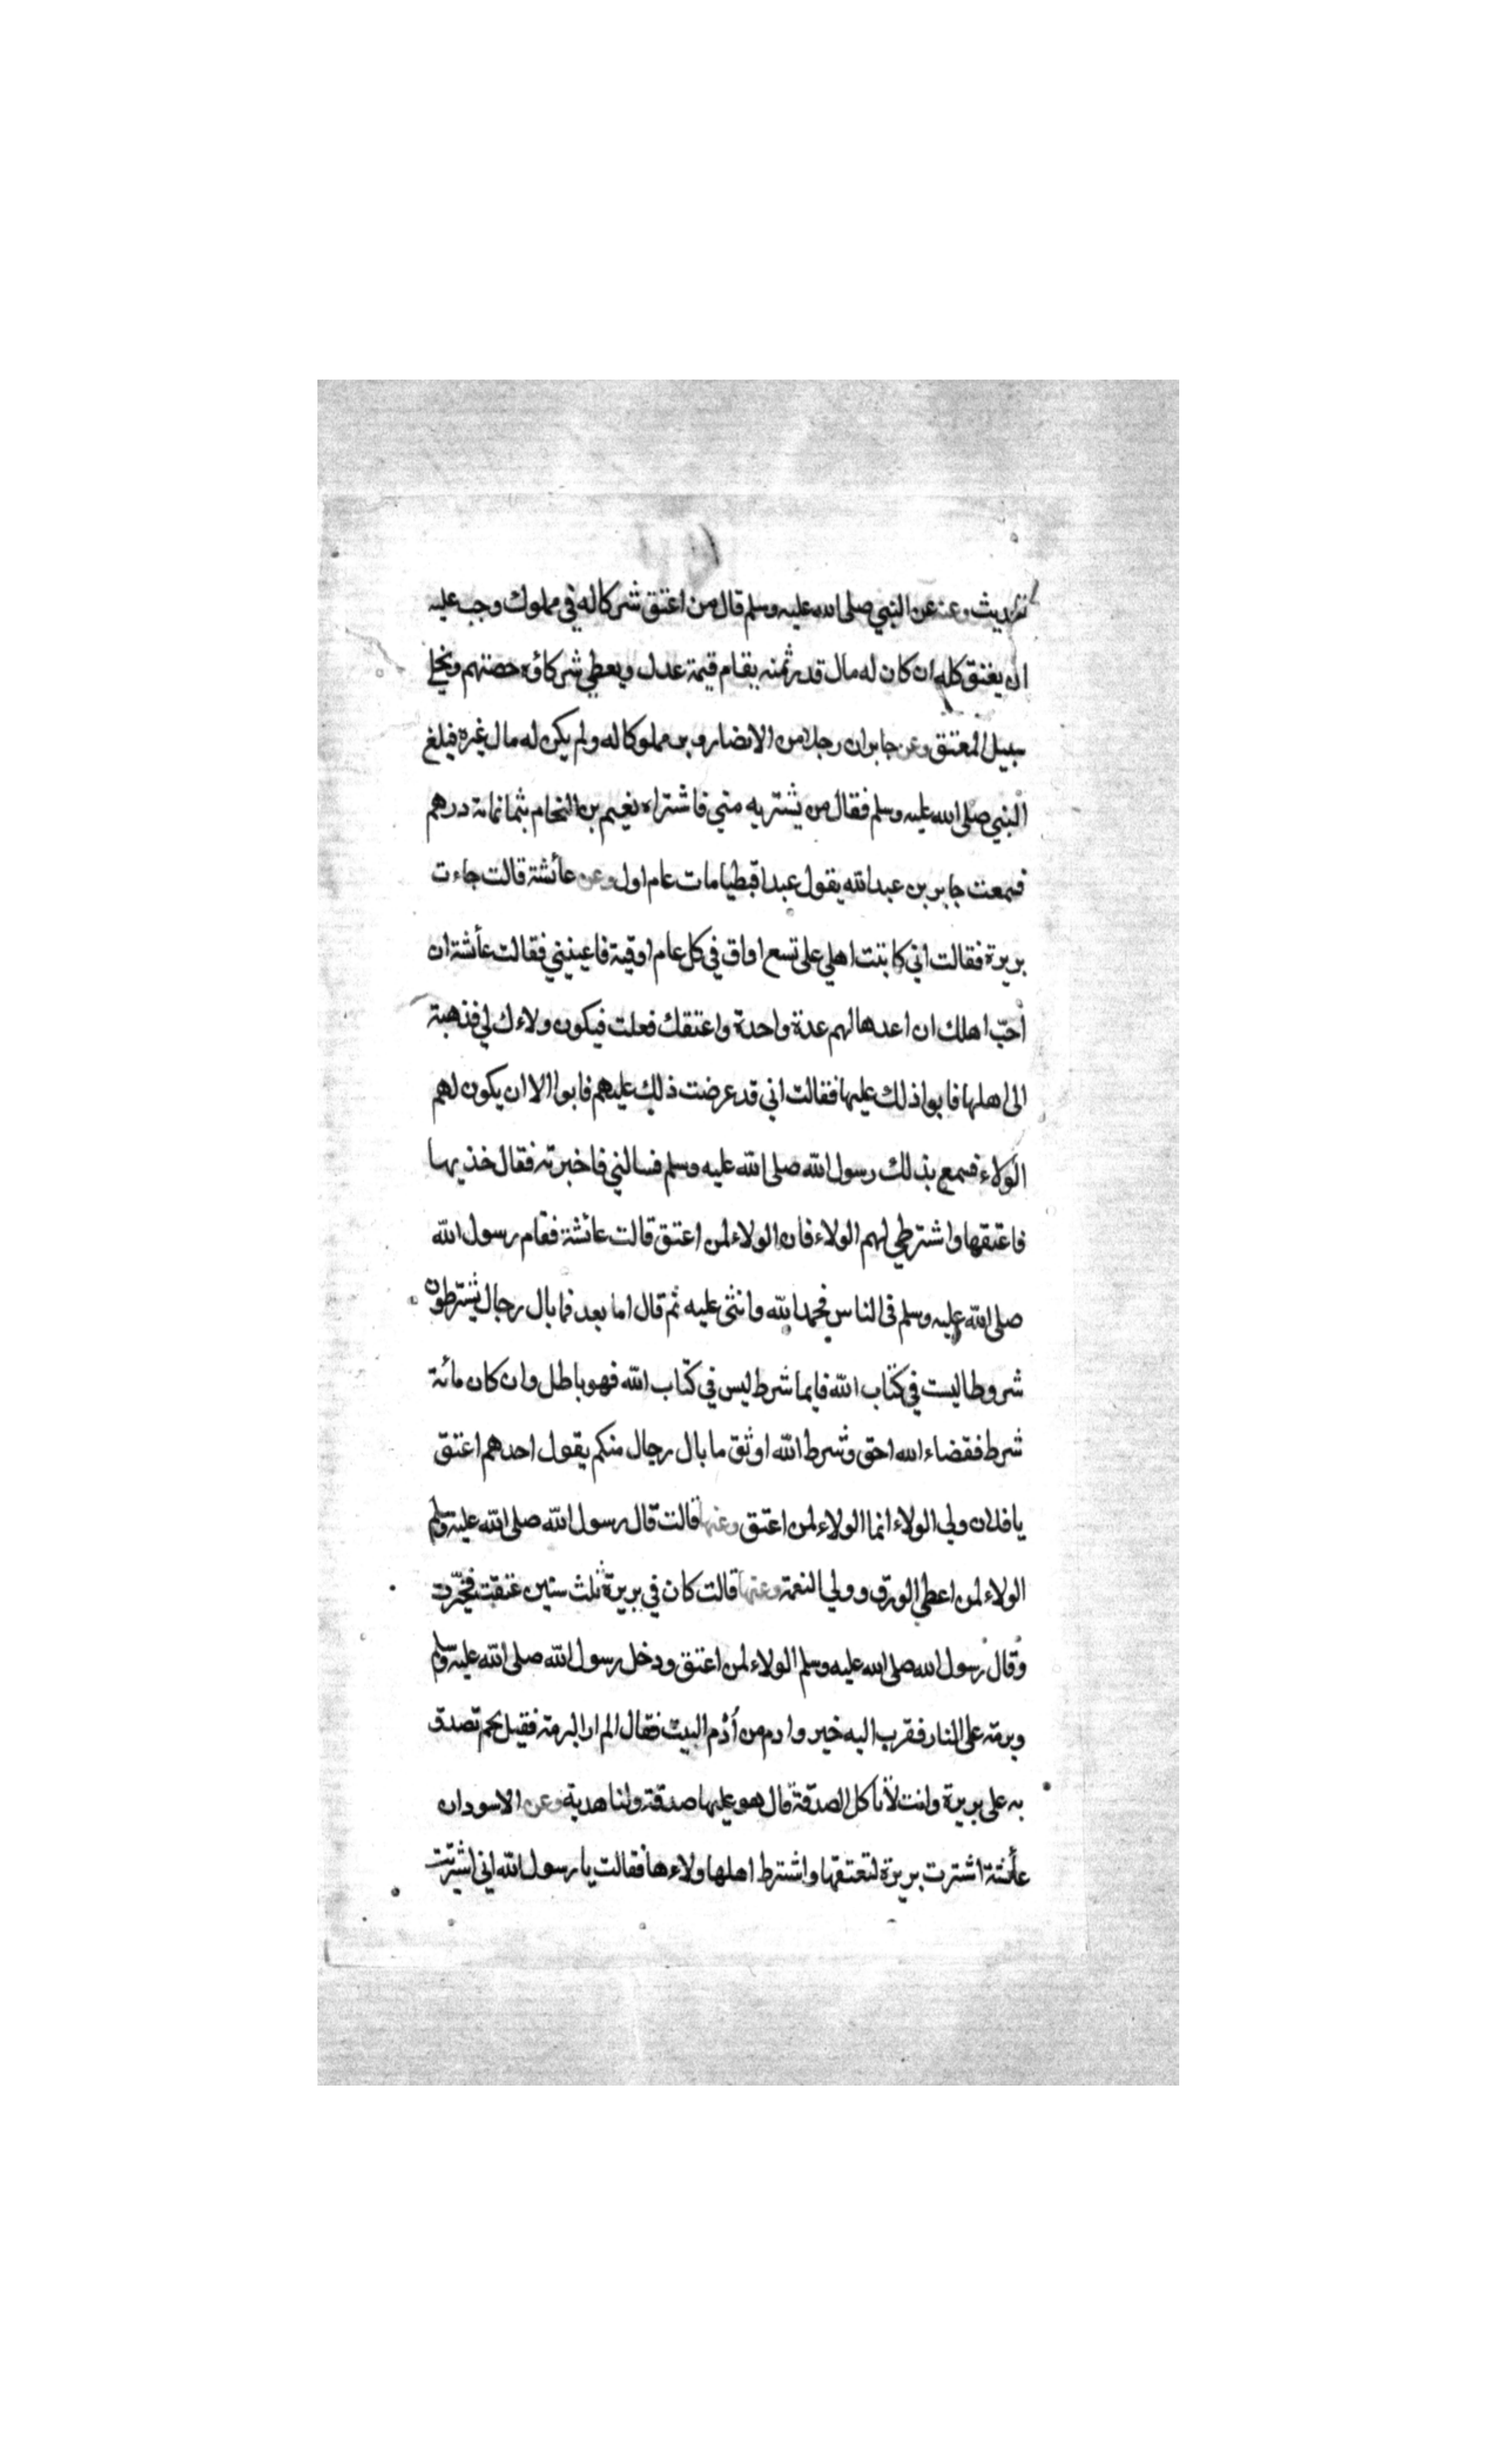 الحديث وعنه عن النبي صلى الله عليه وسلم قال من اعتق شركا له في مملوك وجب عليه
ان يعتق كله ان كان له مال قدر ثمنه يقام قيمة عدل ويعطي شركاؤه حصتهم ويخلى
سبيل المعتق وعن جابر ان رجلا من الانصار دبر مملوكا له ولم يكن له مال غيره فبلغ
النبي صلى الله عليه وسلم فقال من يشتريه مني فاشتراه نعيم بن النحام بثمانمائة درهم
فسمعت جابر بن عبد الله يقول عبدا قبطيا مات عام اول وعن عائشة قالت جاءت
بريرة فقالت اني كاتبت اهلي على تسع اواق في كل عام اوقية فاعينيني فقالت عائشة ان
احبّ اهلك ان اعدها لهم عدة واحدة واعتقك فعلت فيكون ولاءك لي فذهبت
الى اهلها فابوا ذلك عليها فقالت اني قد عرضت ذلك عليهم فابوا الا ان يكون لهم
الولاء فسمع بذلك رسول الله صلى الله عليه وسلم فسالني فاخبرته فقال خذيها
فاعتقها واشترطي لهم الولاء فان الولاء لمن اعتق قالت عائشة فقام رسول الله
صلى الله عليه وسلم في الناس فحمد الله واثنى عليه ثم قال اما بعد فما بال رجال يشترطون
شروطا ليست في كتاب الله فايما شرط ليس في كتاب الله فهو باطل وان كان مائة
شرط فقضاء الله احق وشرط الله اوثق ما بال رجال منكم يقول احدهم اعتق
يا فلان ولي الولاء انما الولاء لمن اعتق وعنها قالت قال رسول الله صلى الله عليه وسلم
الولاء لمن اعطي الورق وولي النعمة وعنها قالت كان في بريرة ثلث سنين عتقت فخيّرت
وقال رسول الله صلى الله عليه وسلم الولاء لمن اعتق ودخل رسول الله صلى الله عليه وسلم
وبرمة على النار فقرب اليه خبر وادم من أدُم البيت فقال الم ار البرمة فقيل لحم تصدق
به على بريرة وانت لا تاكل الصدقة قال هو عليها صدقة ولنا هدية وعن الاسود ان
عائشة اشترت بريرة لتعتقها واشترط اهلها ولاءها فقالت يا رسول الله اني اشتريت